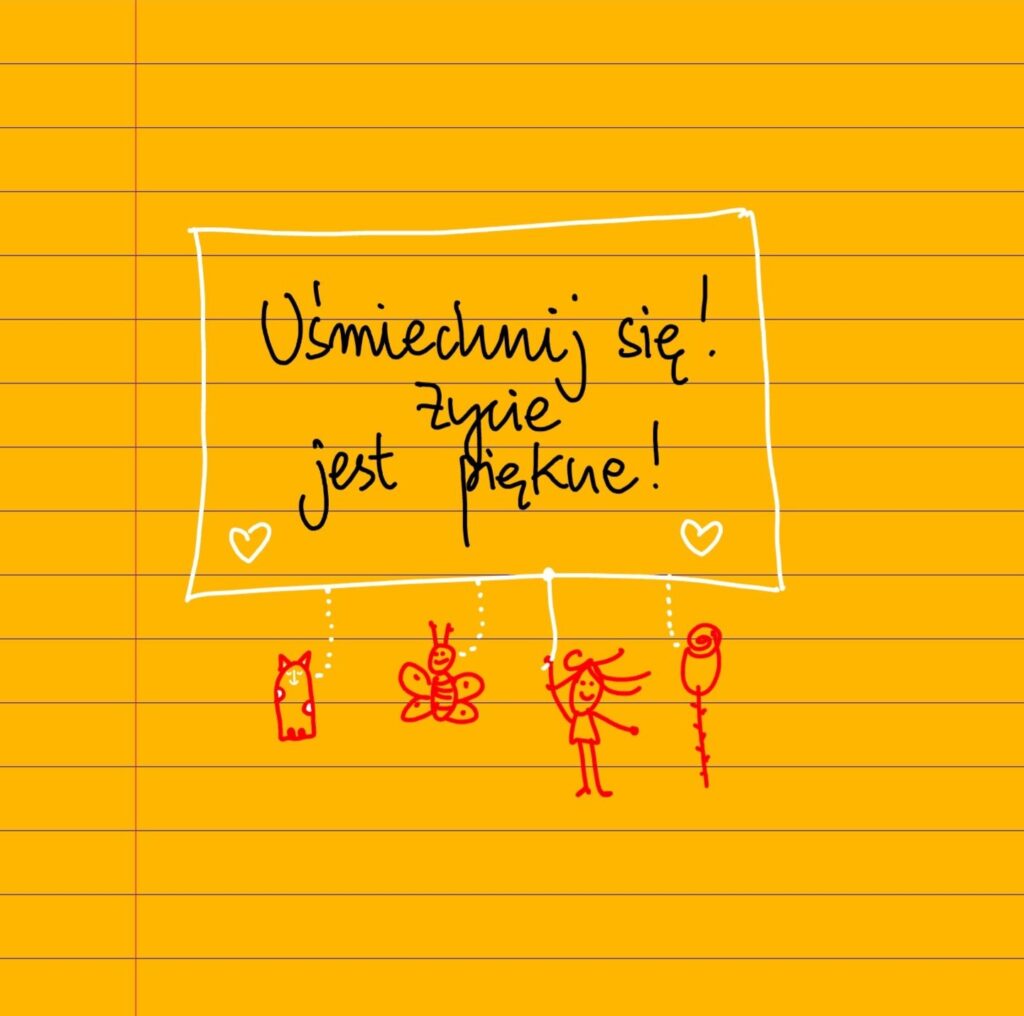 Uśmiechnij się!
Życie
jest piękne!